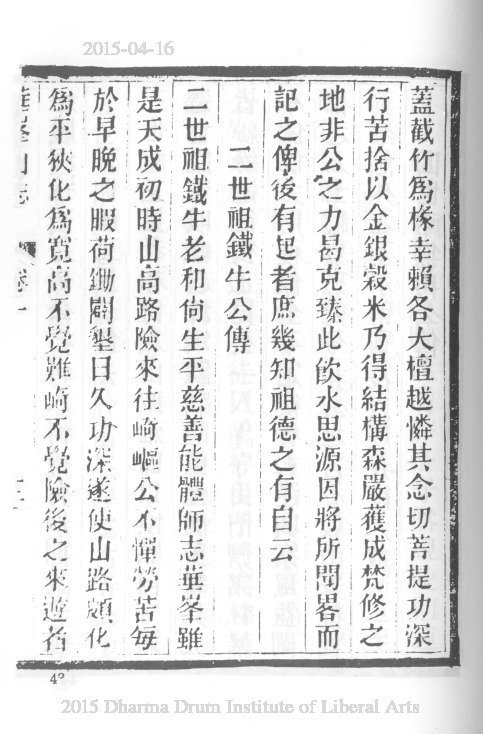 2015-04-16
蓋截竹爲椽幸賴各大檀越憐其念切菩提功深
行苦捨以金銀穀米乃得結構森嚴獲成梵修之
地非公之力曷克臻此飲水思源因將所聞畧而
記之俾後有起者庶幾知祖德之有自云
二世祖鐵牛公傳
二世祖鐵牛老和尙生平慈善能體師志華峯雖
是天成初時山高路險來往崎嶇公不憚勞苦每
於早晚之暇荷鋤闢墾日久功深遂使山路頗化
爲平狹化爲寬高不覺難崎不覺險後之來遊者
華峯山志 卷一
42
2015 Dharma Drum Institute of Liberal Arts